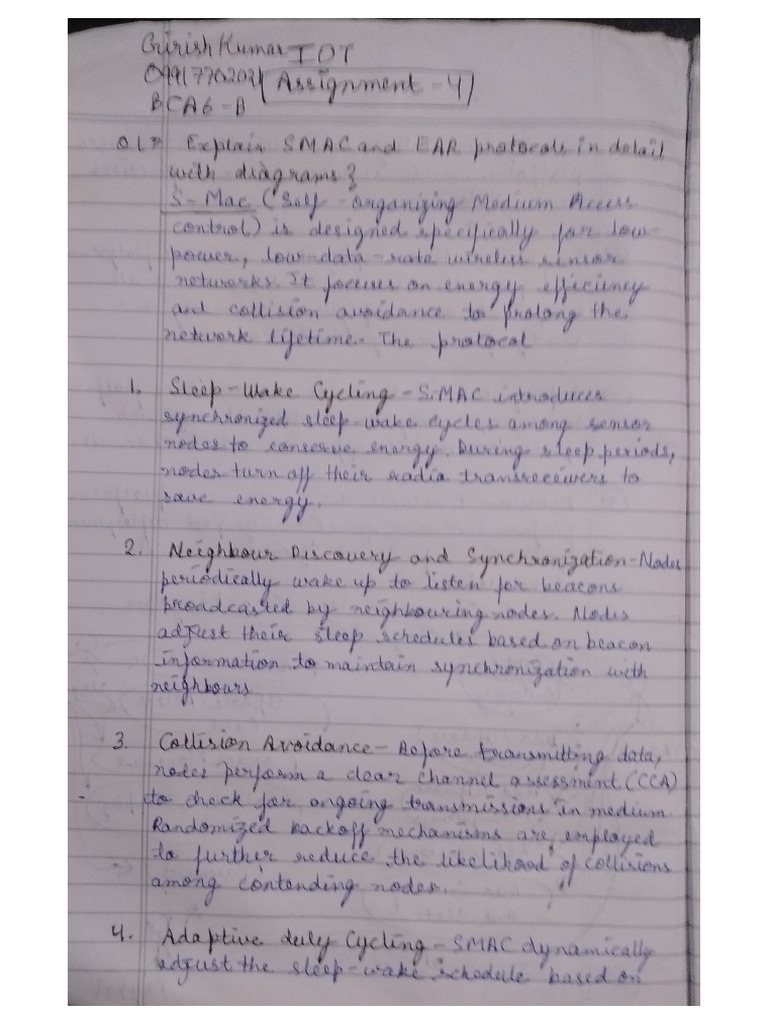 Girish Kumar IOT
09917702021 Assignment - 4
BCA6-B
Q1> Explain SMAC and EAR protocols in detail
with diagrams?
S-Mac (Self-organizing Medium Access
control) is designed specifically for low-
power, low-data-rate wireless sensor
networks. It focuses on energy efficiency
and collision avoidance to prolong the
network lifetime. The protocol
1. Sleep-Wake Cycling - S.MAC introduces
synchronized sleep-wake cycles among sensor
nodes to conserve energy. During sleep periods,
nodes turn off their radio transreceivers to
save energy.
2. Neighbour Discovery and Synchronization - Nodes
periodically wake up to listen for beacons
broadcasted by neighbouring nodes. Nodes
adjust their sleep schedules based on beacon
information to maintain synchronization with
neighbours
3. Collision Avoidance - Before transmitting data,
nodes perform a clear channel assessment (CCA)
to check for ongoing transmissions in medium
Randomized backoff mechanisms are employed
to further reduce the likelihood of collisions
among contending nodes.
4. Adaptive duly Cycling - SMAC dynamically
adjust the sleep-wake schedule based on